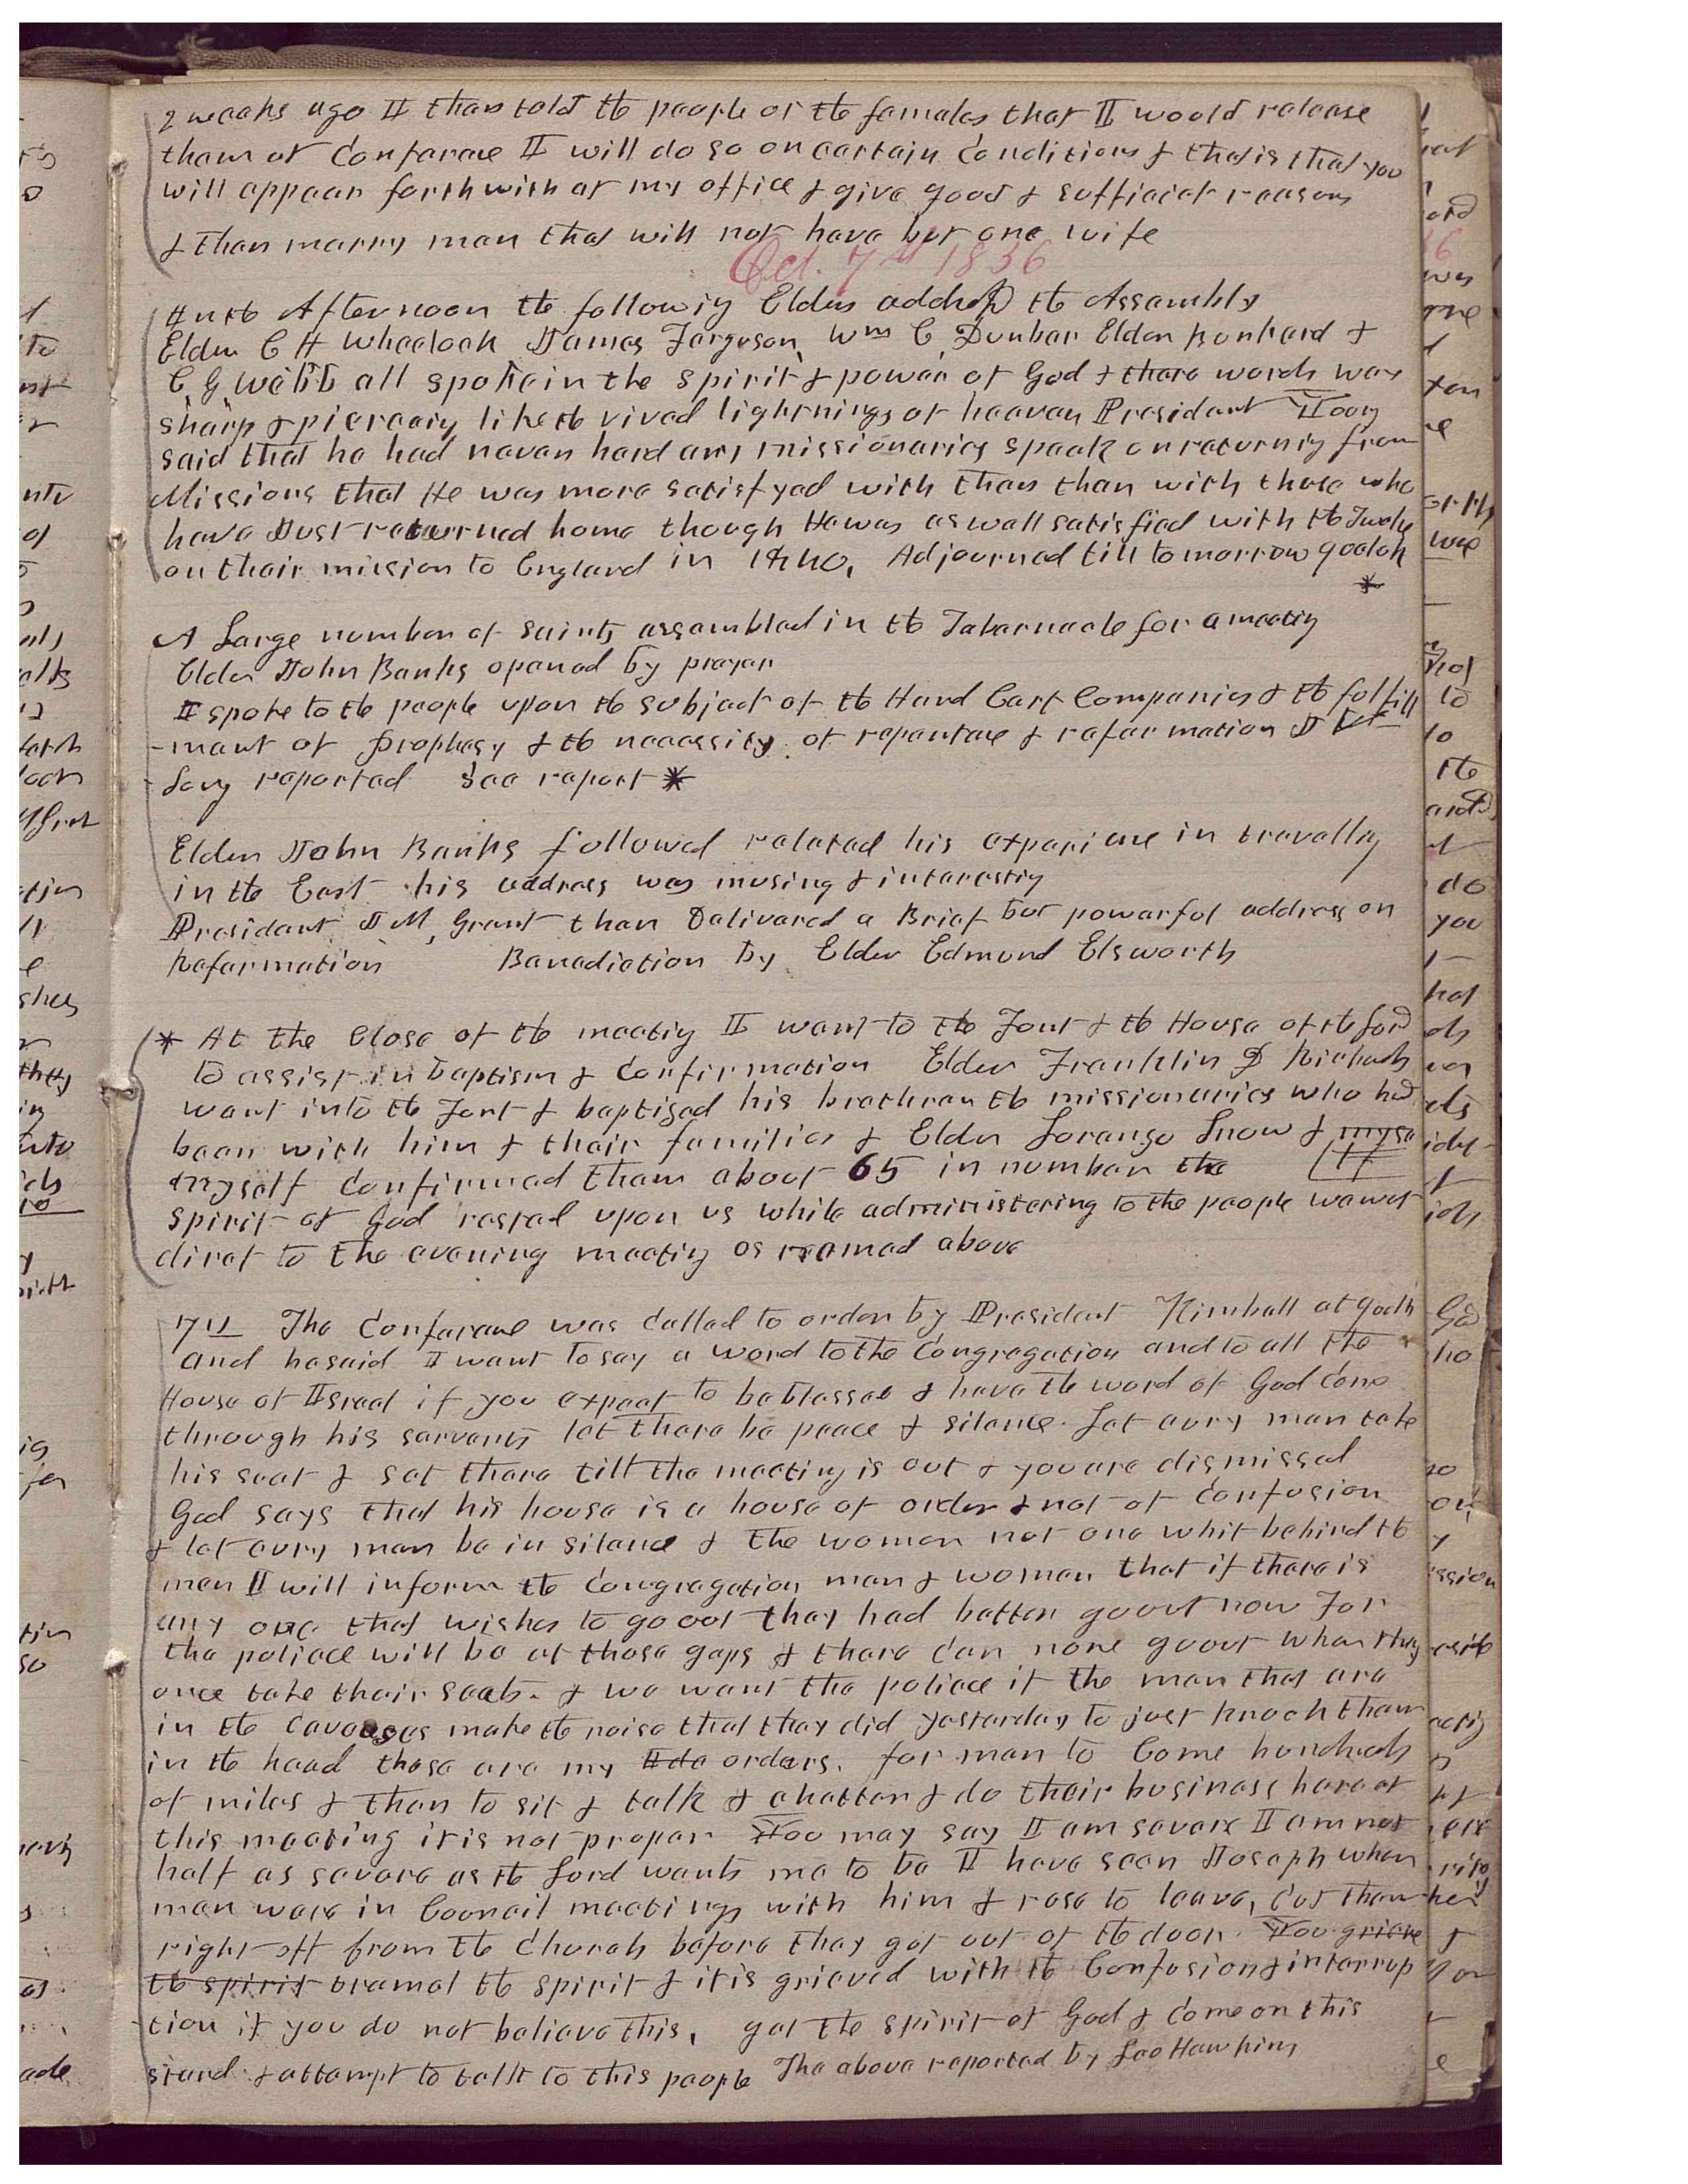 2 weeks ago I then told the people or the females that I would release
them at Conferance I will do so on certain Conditions & that is that you
will appear forthwith at my office & give good & sufficient reasons
& then marry men that will not have but one wife
Oct. 7th 1856
In the Afternoon the following Elders address the Assembly
Elder C H Wheelock James Ferguson, Wm C. Dunbar Elder Bonhard &
C. G. Webb all spoke in the spirit & power of God & there words was
sharp & pierceing like the vived lightnings of heaven President Young
said that he had never hard any missionaries speak on returnig from
Missions that He was more satisfyed with than with those who
have Just returned home though He was as well satisfied with the Twelve
on their mission to England in 1840. Adjourned till to morrow 9 oclok
*
A Large number of saints assembled in the Tabernacle for a meetig
Elder John Banks opened by prayer
I spoke to the people upon the subject of the Hand Cart Companies & the fulfill
-ment of Prophesy & the necessity of repentance & reformation J V
Long reported See report *
Elder John Banks followed related his experience in travellig
in the East his address was musing & interestig
President J M, Grant then Delivered a Brief but powerful address on
Reformation Benediction By Elder Edmond Elsworth
* At the Close of the meetig I went to the Font & the House of the Lord
to assist in baptism & Confirmation Elder Franklin D Richards
went into the Font & baptised his brethren the missionaries who had
been with him & their families & Elder Lorenzo Snow & myse
myself Confirmed them about 65 in number the
spirit of God rested upon us while administering to the people we went
diret to the evening meetig as named above
7th The Conferance was Called to order by President Kimball at 9 oclk
and he said I want to say a word to the Congregation and to all the
House of Israel if you expect to be blessed & have the word of God Come
through his servants let there be peace & silence. Let evry man take
his seat & set there till the meeting is out & you are dismissed
God says that his house is a house of order & not of Confusion
& let evry man be in silence & the women not one whit behind the
men I will inform the Congregation men & women that if there is
any one that wishes to go out they had better go out now For
the poliece will be at those gaps & there Can none go out when they
once take their seats. & we want the poliece if the men that are
in the Cavooses make the noise that they did yesterday to just knock them
in the head these are my orders. for men to Come hundreds
of miles & then to sit & talk & chatter & do their business here at
this meeting it is not proper You may say I am severe I am not
half as severe as the Lord wants me to be I have seen Joseph when
men were in Council meetings with him & rose to leave, Cut them
right off from the Church before they got out of the door. You grieve
the spirit tramel the spirit & it is grieved with the Confusion & interrup
-tion if you do not believe this, get the spirit of God & Come on this
stand & attempt to talk to this people The above reported by Leo Hawkins